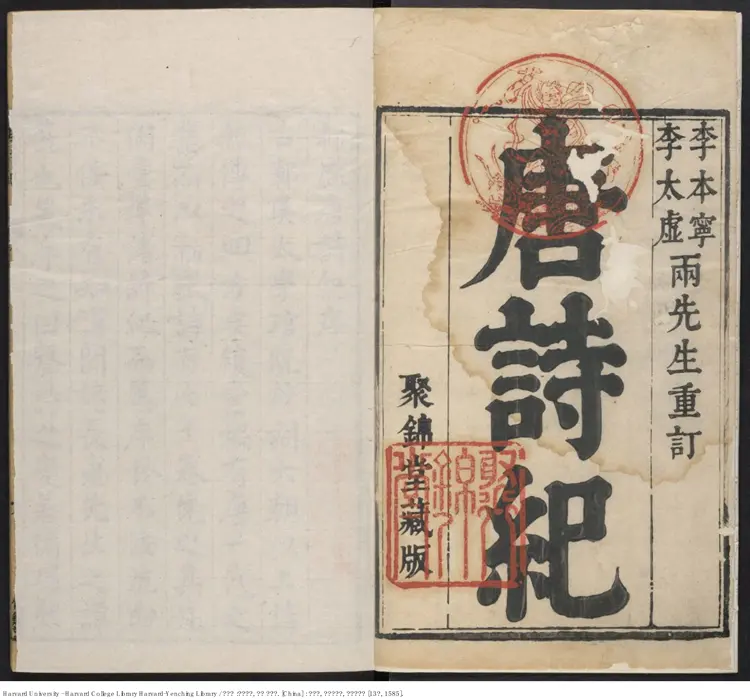 李本寧
李太虛
兩先生重訂
唐詩紀
聚錦堂藏版
聚錦堂
Harvard University - Harvard College Library Harvard-Yenching Library / ??? :????, ?? ???. [China] : ???, ?????, ????? [13?, 1585].